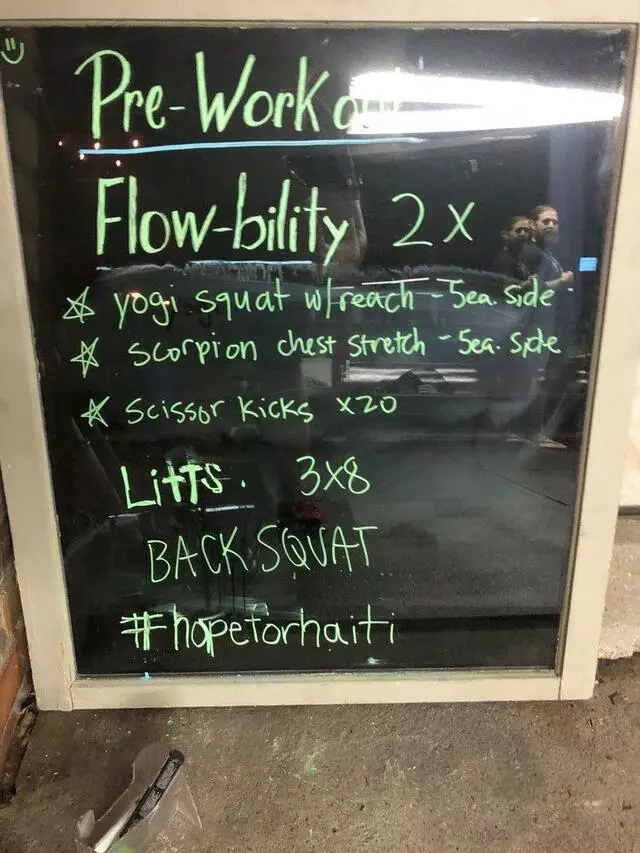 Pre-Workout
Flow-bility 2x
yogi squat w/reach - 5ea. Side
scorpion chest stretch - 5ea. Side
scissor kicks x20
Lifts. 3x8
BACK SQUAT
#hopeforhaiti